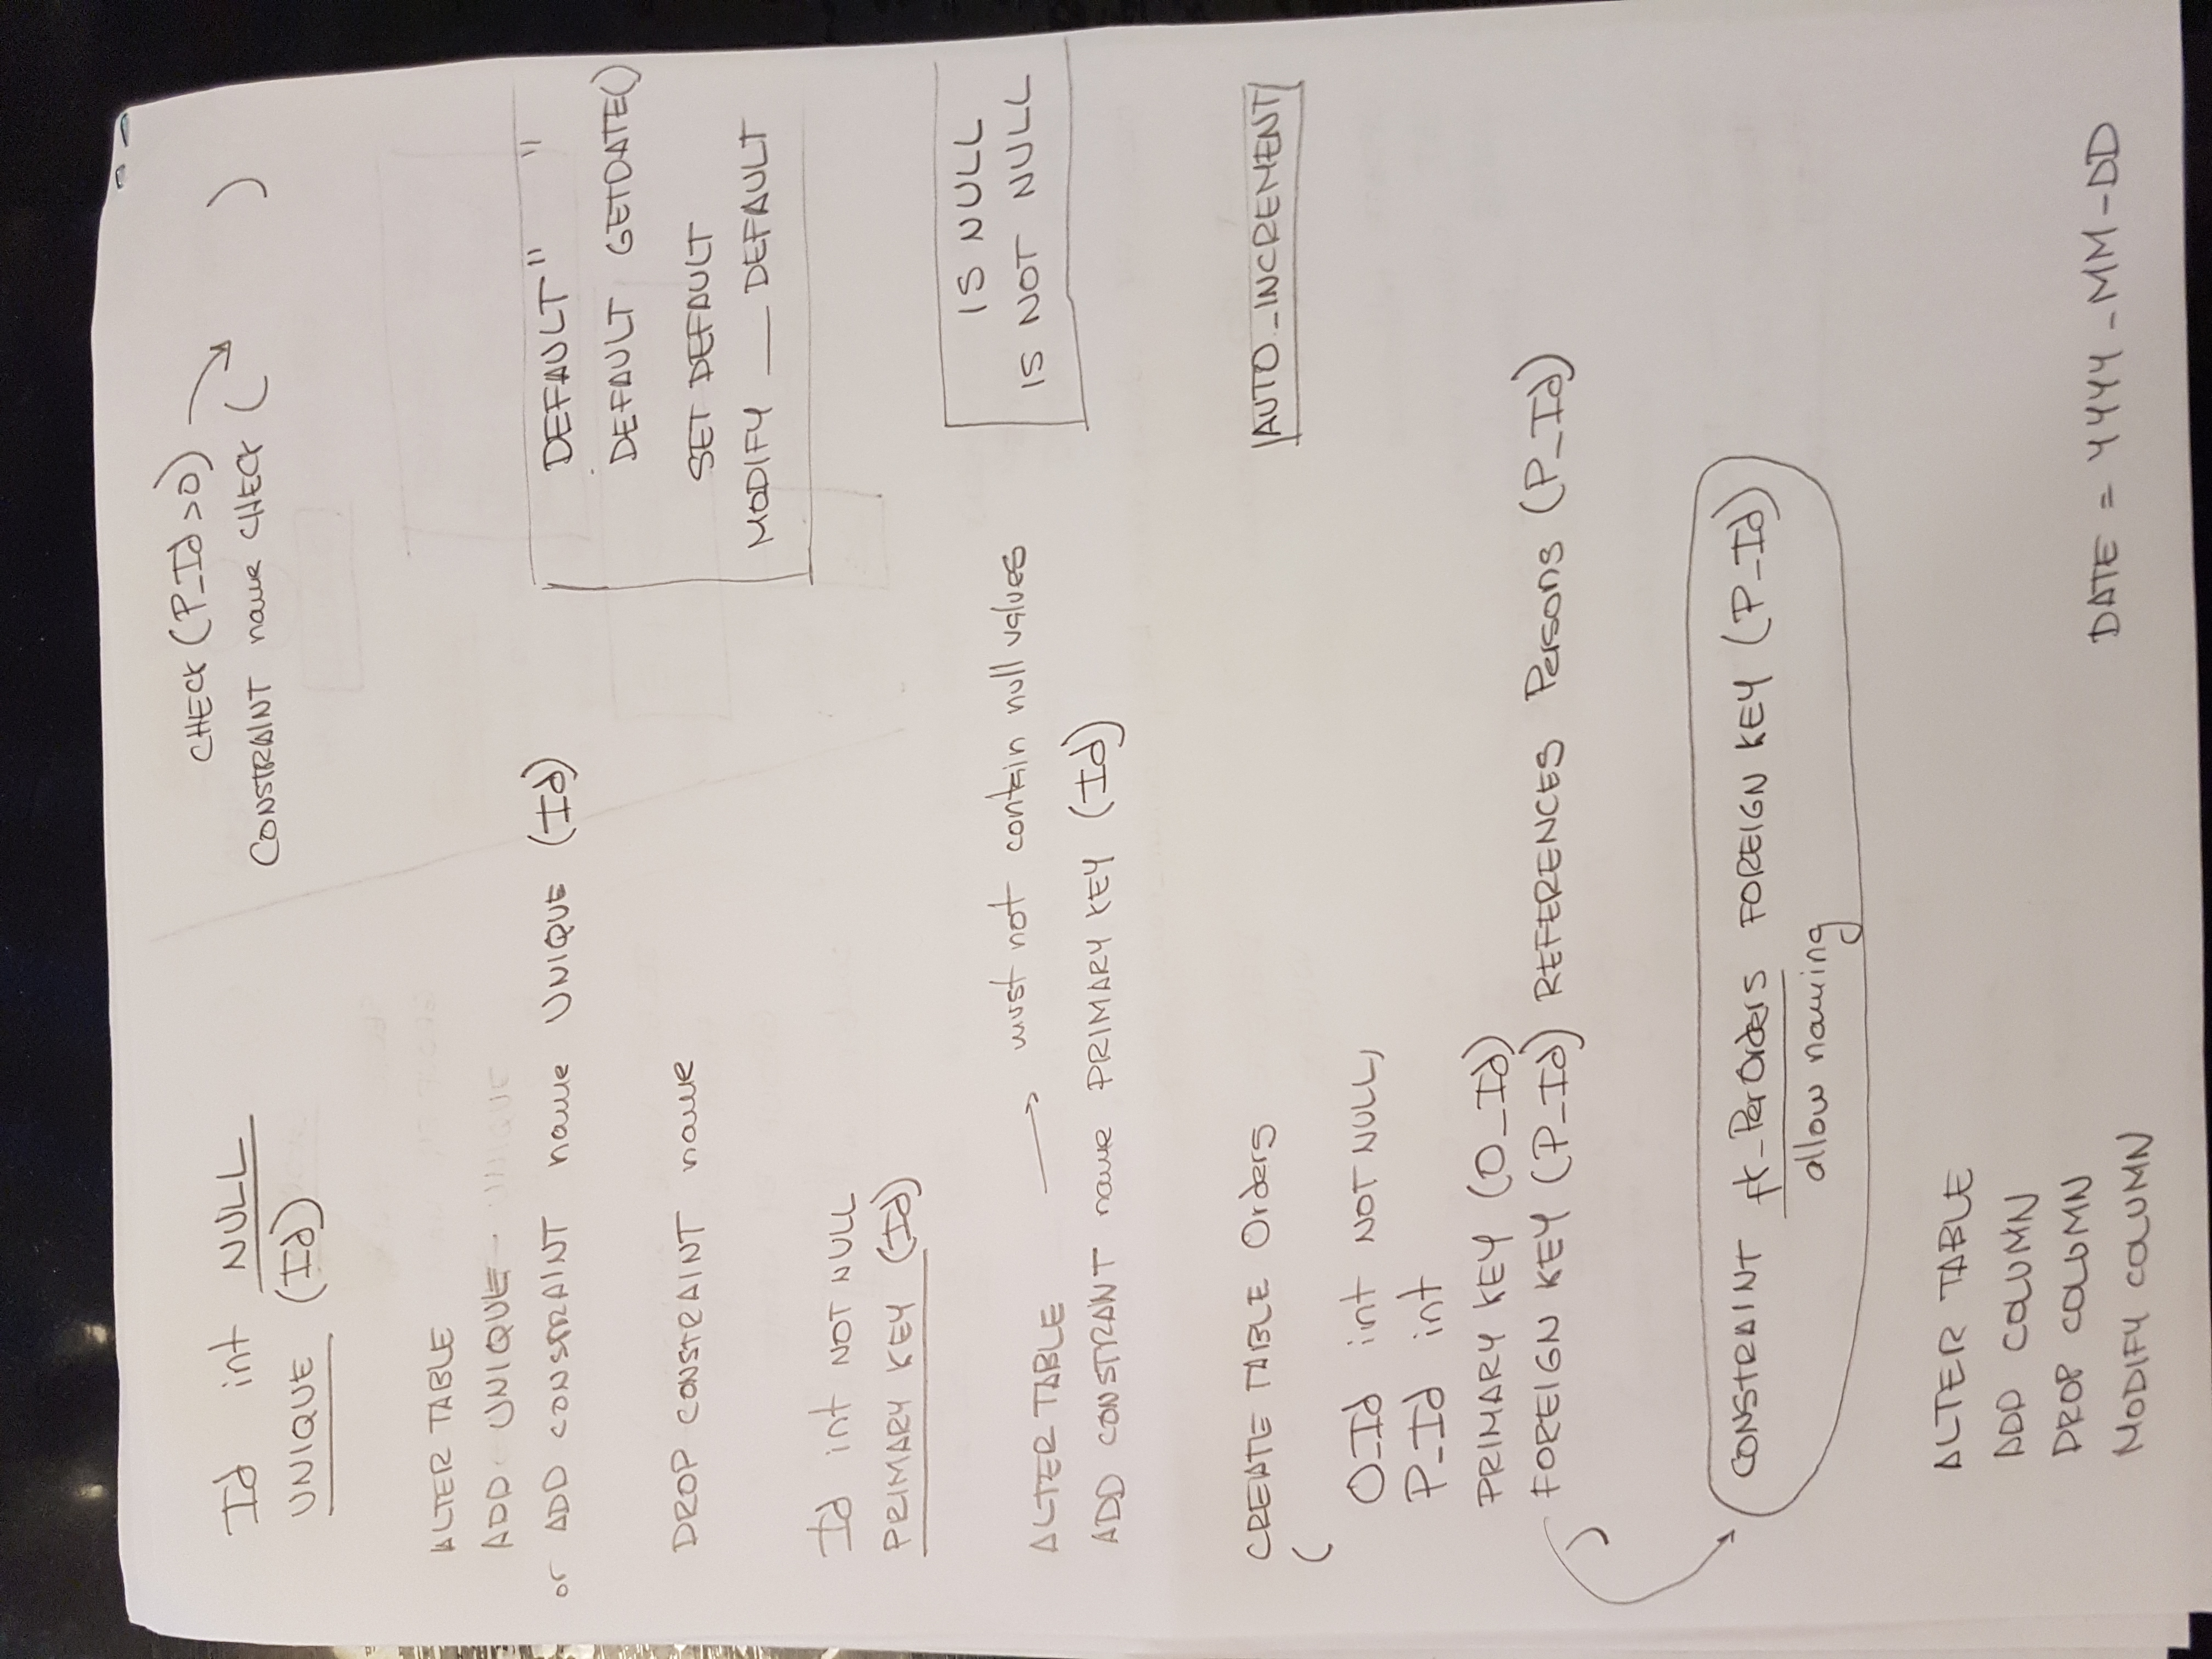 Id int NULL
UNIQUE (Id)
CHECK (P_Id > 0)
CONSTRAINT name CHECK ( )
ALTER TABLE
ADD UNIQUE
or ADD CONSTRAINT name UNIQUE (Id)
DROP CONSTRAINT name
DEFAULT " "
DEFAULT GETDATE()
SET DEFAULT
MODIFY __ DEFAULT
Id int NOT NULL
PRIMARY KEY (Id)
IS NULL
IS NOT NULL
ALTER TABLE → must not contain null values
ADD CONSTRAINT name PRIMARY KEY (Id)
AUTO_INCREMENT
CREATE TABLE Orders
(
O_Id int NOT NULL,
P_Id int
PRIMARY KEY (O_Id)
FOREIGN KEY (P_Id) REFERENCES Persons (P_Id)
)
CONSTRAINT fk_PerOrders FOREIGN KEY (P_Id)
allow naming
ALTER TABLE
ADD COLUMN
DROP COLUMN
MODIFY COLUMN
DATE = YYYY-MM-DD